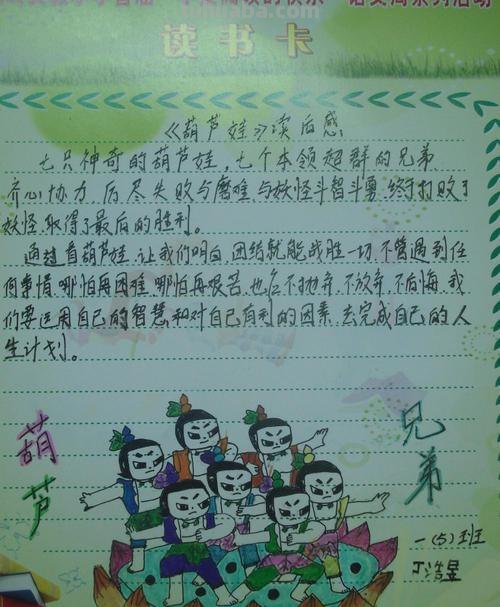 读书卡
《葫芦娃》读后感
七只神奇的葫芦娃，七个本领超群的兄弟，
齐心协力，历尽失败与磨难，与妖怪斗智斗勇，终于打败了
妖怪，取得了最后的胜利。
通过看葫芦娃，让我们明白，团结就能战胜一切，不管遇到任
何事情，哪怕再困难，哪怕再艰苦，也应不抛弃，不放弃，不后悔，我
们要运用自己的智慧，和对自己有利的因素，去完成自己的人
生计划。
葫芦
兄弟
一(5)班
丁浩昱